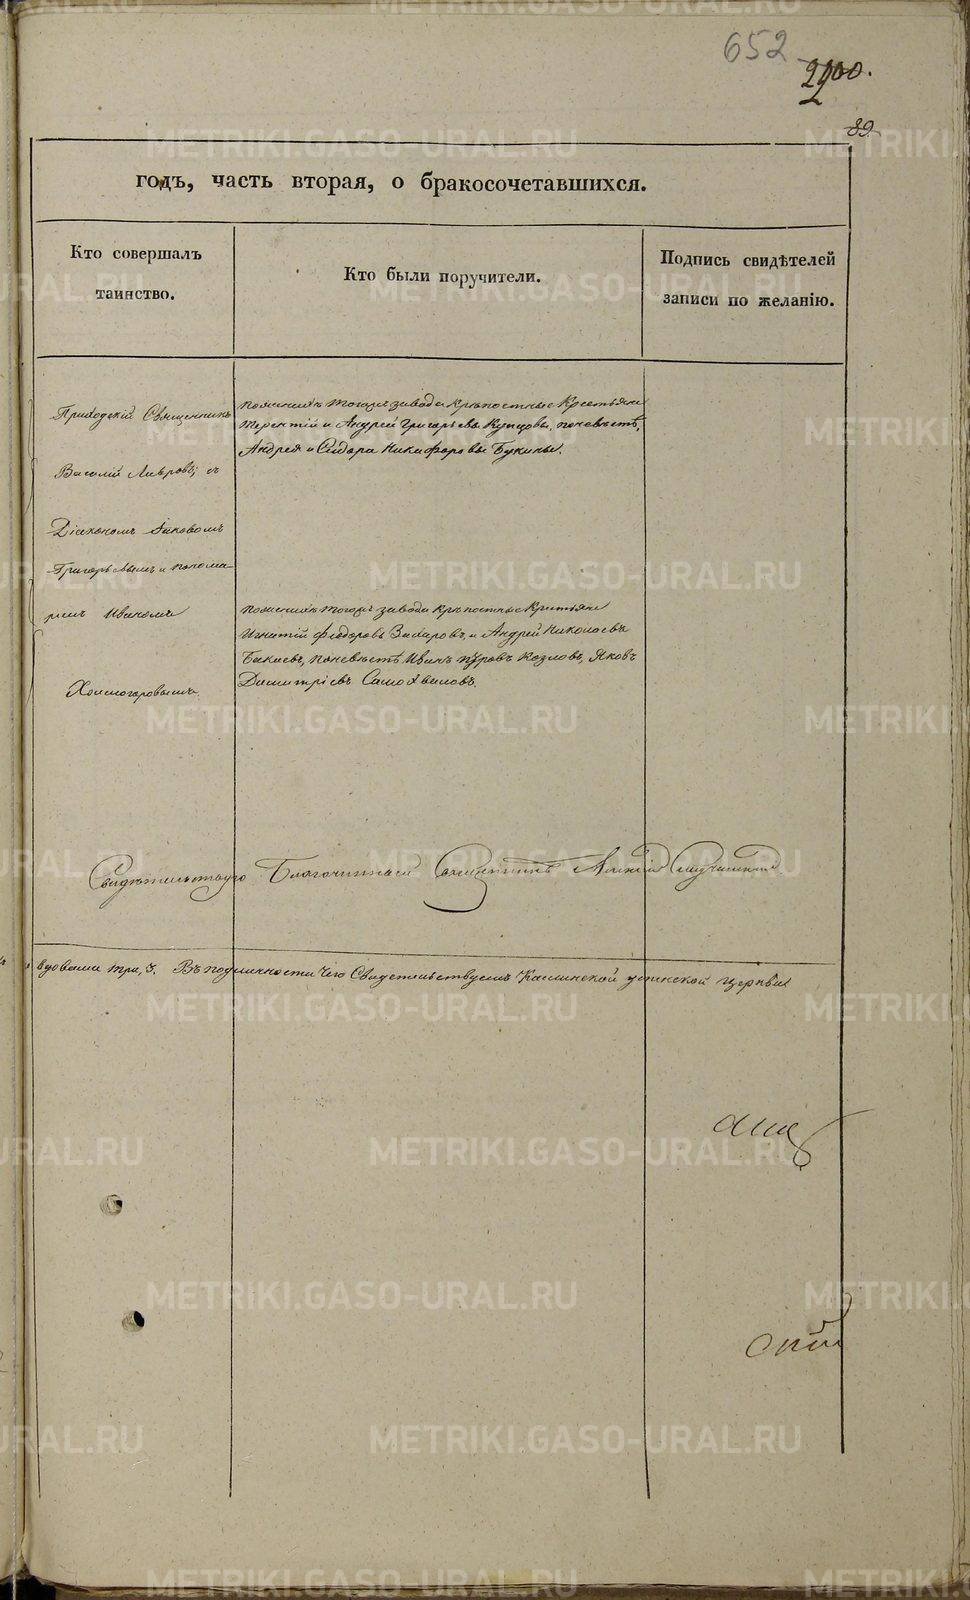 652
2900.
89
годъ, часть вторая, о бракосочетавшихся.
Кто совершалъ
таинство.
Кто были поручители.
Подпись свидѣтелей
записи по желанію.
Приходскій Священникъ
Василій Лавровъ; съ
Діакономъ Іаковомъ
Григорьевымъ и понома-
ремъ Иваномъ
Холмогоровымъ.
По женихѣ тогожъ завода крѣпостные Крестьяне
Терентій и Андрей Григорьевы Купцовы, по невѣстѣ,
Андрея и Сидора Никифоровы Букины.
По женихѣ тогожъ завода крѣпостные Кретьяне
Игнатій Феодоровъ Захаровъ, и Андрей Николаевъ
Бакаевъ, по невѣстѣ Иванъ Козловъ, Яковъ
Димитріевъ Самохваловъ.
Свидѣтельствую Благочинный Священникъ Алексій
вдовыми три, 3. Въ подлинности чего Свидетельствуемъ Каслинской успенской церкви
скій
METRIKI.GASO-URAL.RU